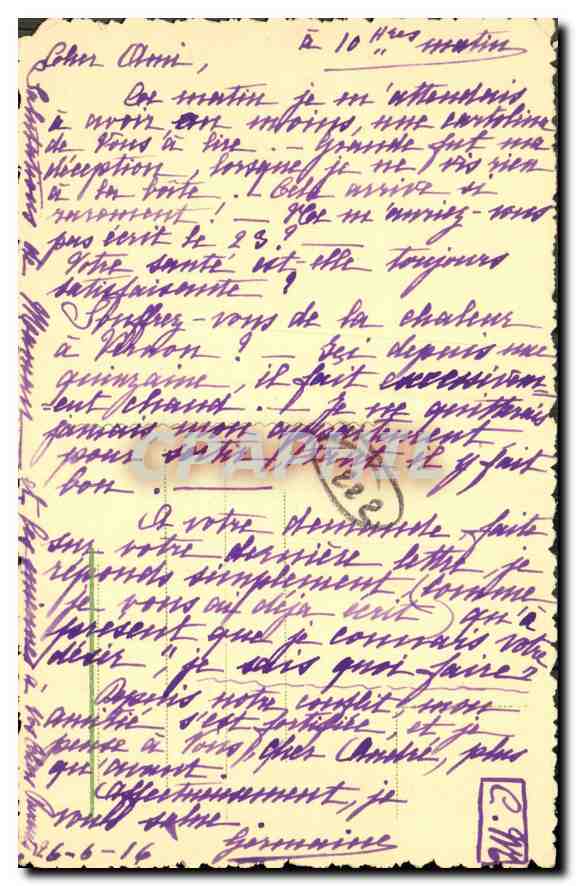 à 10 Hres matin
Cher Ami,
Ce matin je m'attendais
à avoir au moins, une cartoline
de Vous à lire. - Grande fut ma
déception, lorsque je ne vis rien
à la boîte. - Cela arrive si
rarement! - Ne m'auriez-vous
pas écrit le 23? -
Votre santé est-elle toujours
satisfaisante?
Souffrez-vous de la chaleur
à Vernon? - Ici depuis une
quinzaine, il fait excessivem-
ent chaud. - Je ne quitterais
jamais mon appartement
pour sortir, tant il y fait
bon.
222
A votre demande, faite
sur votre dernière lettre, je
réponds simplement (comme
je vous ai déjà écrit) qu'à
présent que je connais votre
désir, "je sais quoi faire"
Depuis notre conflit, mon
amitié s'est fortifiée, et je
pense à Vous, cher André, plus
qu'avant.
Affectueusement, je
vous salue
Germaine
26-6-16
C.M
Salutations de Maman et les
CPAPHIL